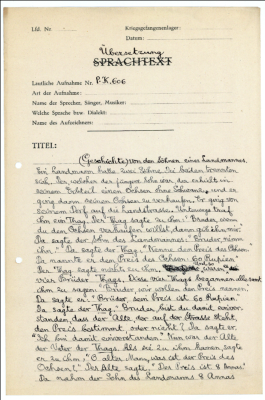 Lfd. Nr.
Kriegsgefangenenlager:
Datum:
Übersetzung
SPRACHTEXT
Lautliche Aufnahme Nr. P.K. 606
Art der Aufnahme:
Name der Sprecher, Sänger, Musiker:
Welche Sprache bzw. Dialekt:
Name des Aufzeichners:
TITEL:
(Geschichte) von den Söhnen eines Landmannes.
Ein Landmann hatte zwei Söhne. Die beiden trennten
sich. Der jüngere Sohn war der, erhielt in
seinem Erbteil einen Ochsen ohne Schwanz, und er
ging dann seinen Ochsen zu verkaufen. Er ging von
seinem Dorf auf die Landstrasse. Unterwegs traf
ihn ein Thag. Der Thag sagte zu ihm: "Bruder, wenn
du den Ochsen verkaufen willst, dann gib ihn mir."
Da sagte der Sohn des Landmannes: "Bruder, nimm
ihn." Da sagte der Thag: "Nenne den Preis des Ochsen."
Da nannte er den Preis des Ochsen: 60 Rupien.
Der Thag sagte nichts zu ihm, und es waren
vier Brüder Thags. Diese vier Thags begannen alle samt
ihm zu sagen: "Bruder, wir wollen den Preis nennen."
Da sagte er: "Brüder, sein Preis ist 60 Rupien."
Da sagte der Thag: "Bruder, bist du damit einver-
standen, dass der Alte, der auf der Strasse steht,
den Preis bestimmt, oder nicht?" Da sagte er:
"Ich bin damit einverstanden." Nun war der Alte
der Vater der Thags. Als sie zu ihm kamen, sagte
er zu ihm: "O alter Mann, was ist der Preis des
Ochsen?" Der Alte sagte: "Der Preis ist 8 Annas."
Da nahm der Sohn des Landmanns 8 Annas